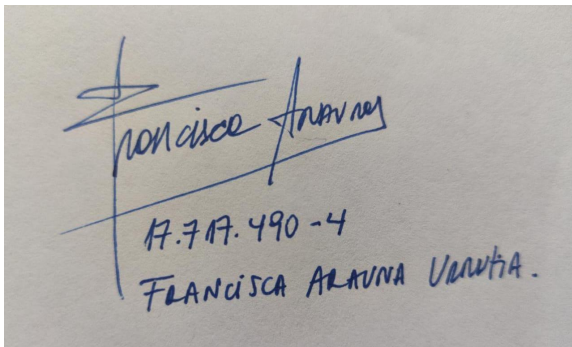 Francisca Arauna
17.717.490-4
FRANCISCA ARAUNA URRUTIA.